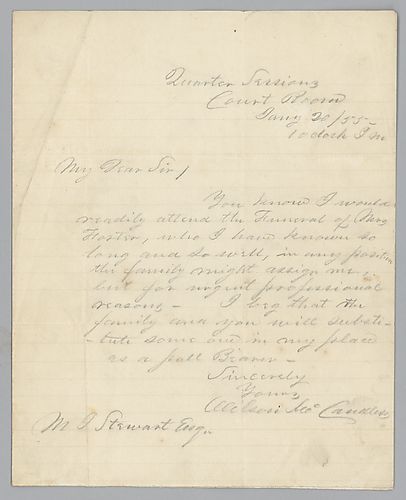 Quarter Sessions
Court Room
Jany 20/55-
1 oclock P m
My Dear Sir/
You know I would
readily attend the Funeral of Mrs
Foster, who I have known so
long and so well, in any position
the family might assign me,
but for urgent professional
reasons - I beg that the
family and you will substi-
-tute some one in my place
as a pall Bearer -
Sincerely
Yours
Wilson McCandless
Stewart Esqr